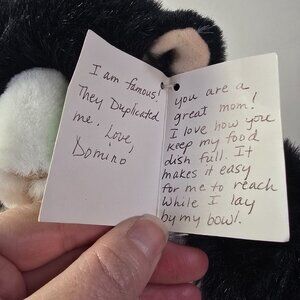 I am famous!
They Duplicated
me. Love,
Domino
you are a
great mom!
I love how you
keep my food
dish full. It
makes it easy
for me to reach
while I lay
by my bowl.